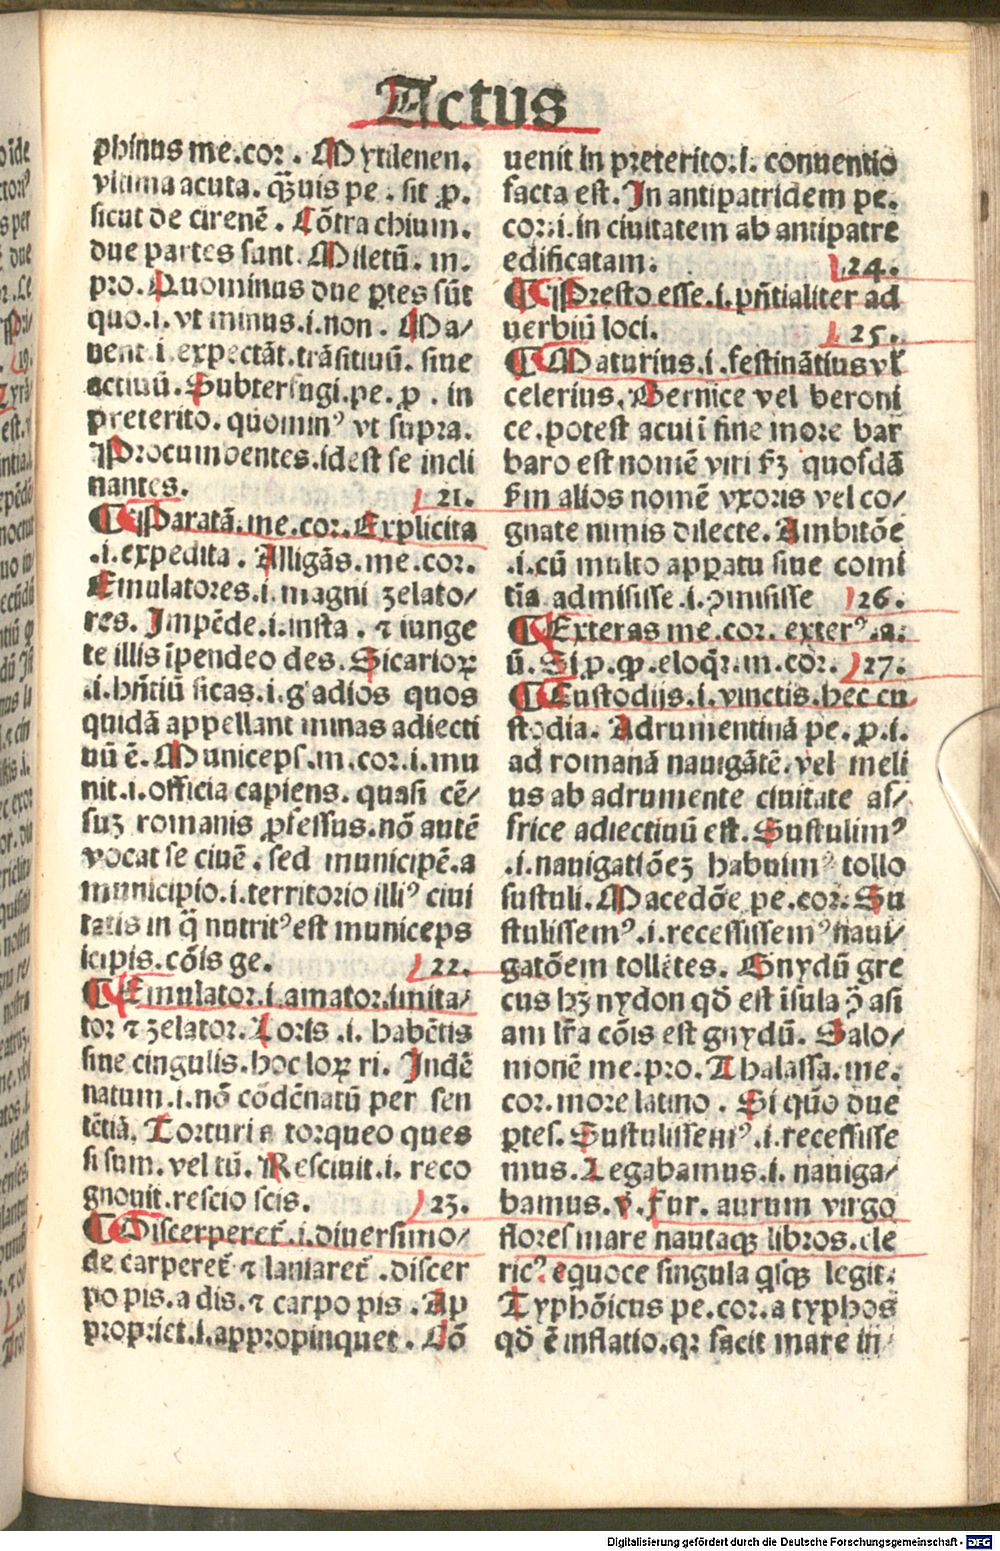 Actus
phinus me.cor. Mytilenen.
vltima acuta. q̃uis pe. sit ꝓ.
sicut de cirenē. Cōtra chium.
due partes sunt. Miletū. m.
pro. Quominus due ꝑtes sūt
quo.i. vt minus.i.non. Ma/
nent.i.expectāt.trāsitiuū. siue
actiuū. Subterfugi.pe.ꝓ. in
preterito. quominꝰ vt supra.
Procumbentes.idest se incli
nantes. 21.
¶Paratā.me.cor.Explicita
.i.expedita. Alligās.me.cor.
Emulatores.i.magni zelato/
res. Impēde.i.insta. ⁊ iunge
te illis īpendeo des. Sicarioꝝ
.i.hn̄tiū sicas.i.gladios quos
quidā appellant minas adiecti
uū ē. Municeps.m.cor.i.mu
nit.i.officia capiens. quasi cē/
suꝫ romanis ꝓfessus.nō autē
vocat se ciuē. sed municipē.a
municipio.i.territorio illiꝰ ciui
tatis in q̄ nutritꝰ est municeps
icipis.cōis ge. 22.
¶Emulator.i.amator.imita/
tor ⁊ zelator. Loris.i. habētis
siue cingulis.hoc loꝝ ri. Indē
natum.i.nō cōdēnatū per sen
tētiā. Torturis torqueo ques
si sum. vel tū. Resciuit.i. reco
gnouit.rescio scis. 23.
¶Discerperet̄.i.diuersimo/
de carperet̄ ⁊ laniaret̄.discer
po pis.a dis.⁊ carpo pis. Ap
propriet.i.appropinquet. Cō
uenit in preterito.i. conuentio
facta est. In antipatridem pe.
cor.i.in ciuitatem ab antipatre
edificatam. 24.
¶Presto esse.i.pn̄tialiter ad
uerbiū loci. 25.
¶Maturius.i.festinātius vl̄
celerius. Bernice vel beroni
ce.potest acui ī fine more bar
baro est nomē viri ẜꝫ quosdā
ẜm alios nomē vxoris vel co/
gnate nimis dilecte. Ambitōe
.i.cū multo apparatu siue comi
tīa admisisse.i.ꝑmisisse 26.
¶Exteras me.cor. exterꝰ.a.
ū. Si ꝓ.ꝙ.eloqr̄.m.cor. 27.
¶Custodijs.i.vinctis.hec cu
stodia. Adrumentinā pe.ꝓ.i.
ad romanā nauigātē.vel meli
us ab adrumente ciuitate af/
frice adiectiuū est. Sustulimꝰ
.i.nauigatiōeꝫ habuimꝰ tollo
sustuli. Macedōe pe.cor. Su
stulissemꝰ.i.recessissemꝰ naui/
gatōem tollētes. Gnydū gre
cus hꝫ nydon qđ est īsula ꝓ asi
am lr̄a cōis est gnydū. Salo/
monē me.pro. Thalassa.me.
cor.more latino. Si quō due
ꝑtes. Sustulissemꝰ.i.recessisse
mus. Legabamus.i. nauiga/
bamus. v̄. fur. aurum virgo
flores mare nautaqꝫ libros.cle
ricꝰ equoce singula qsqꝫ legit.
Typhōicus pe.cor.a typhos
qđ ē inflatio.qꝛ facit mare in